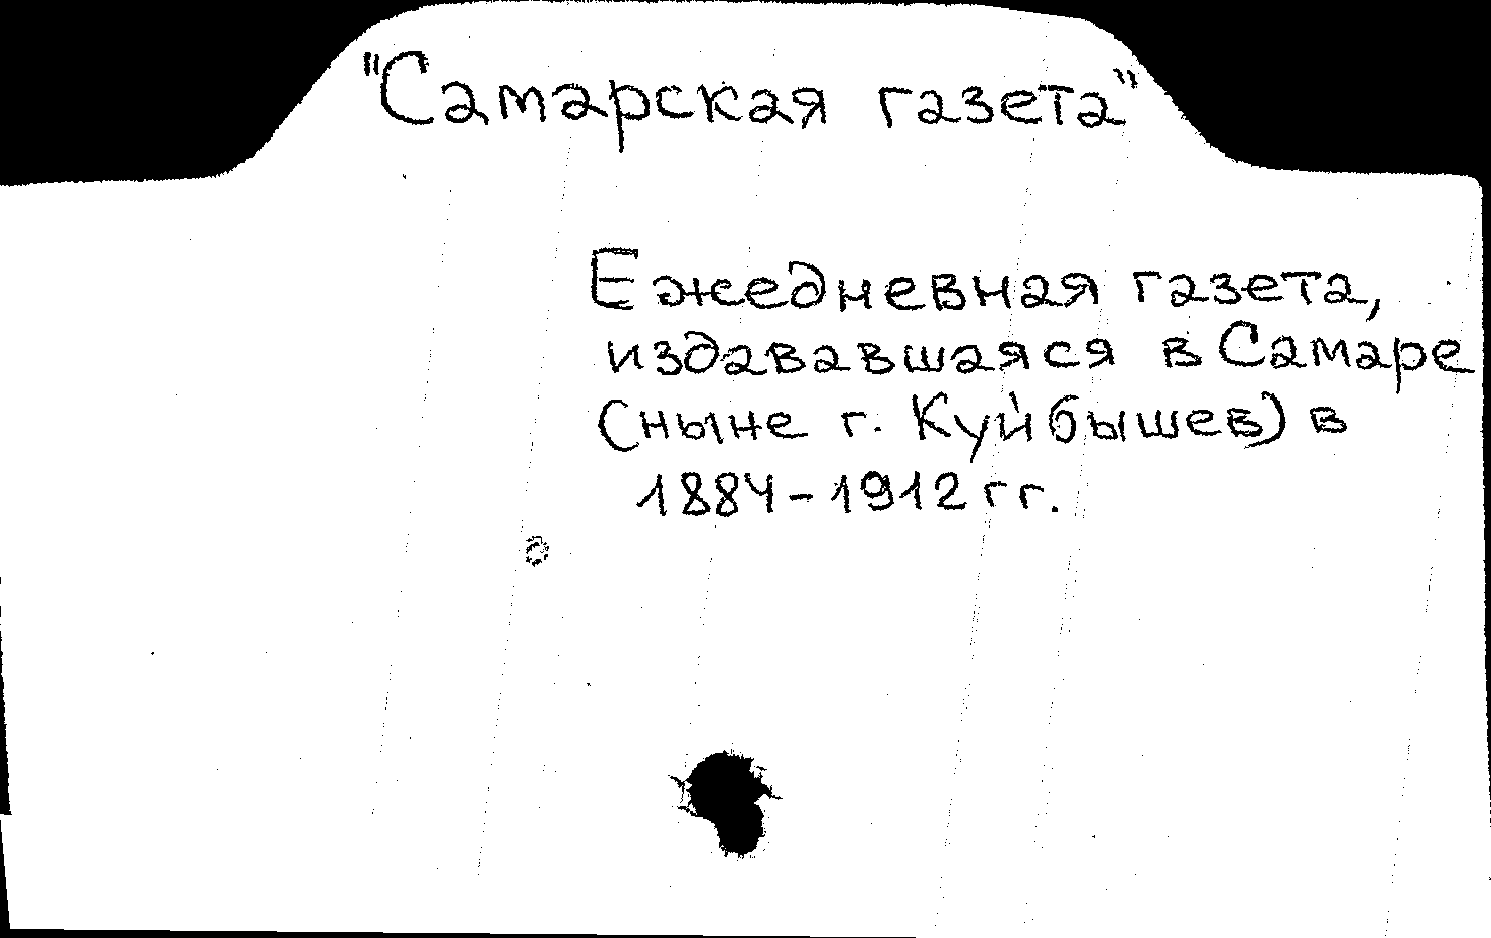 "Самарская газета"
Ежедневная газета,
издававшаяся в Самаре
(ныне г. Куйбышев) в
1884-1912 гг.